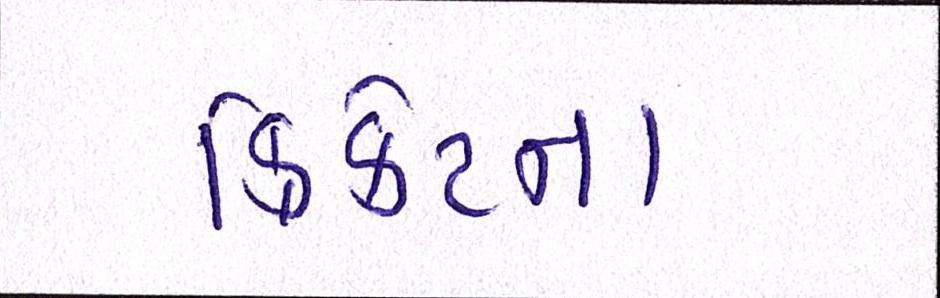 ક્રિકેટના